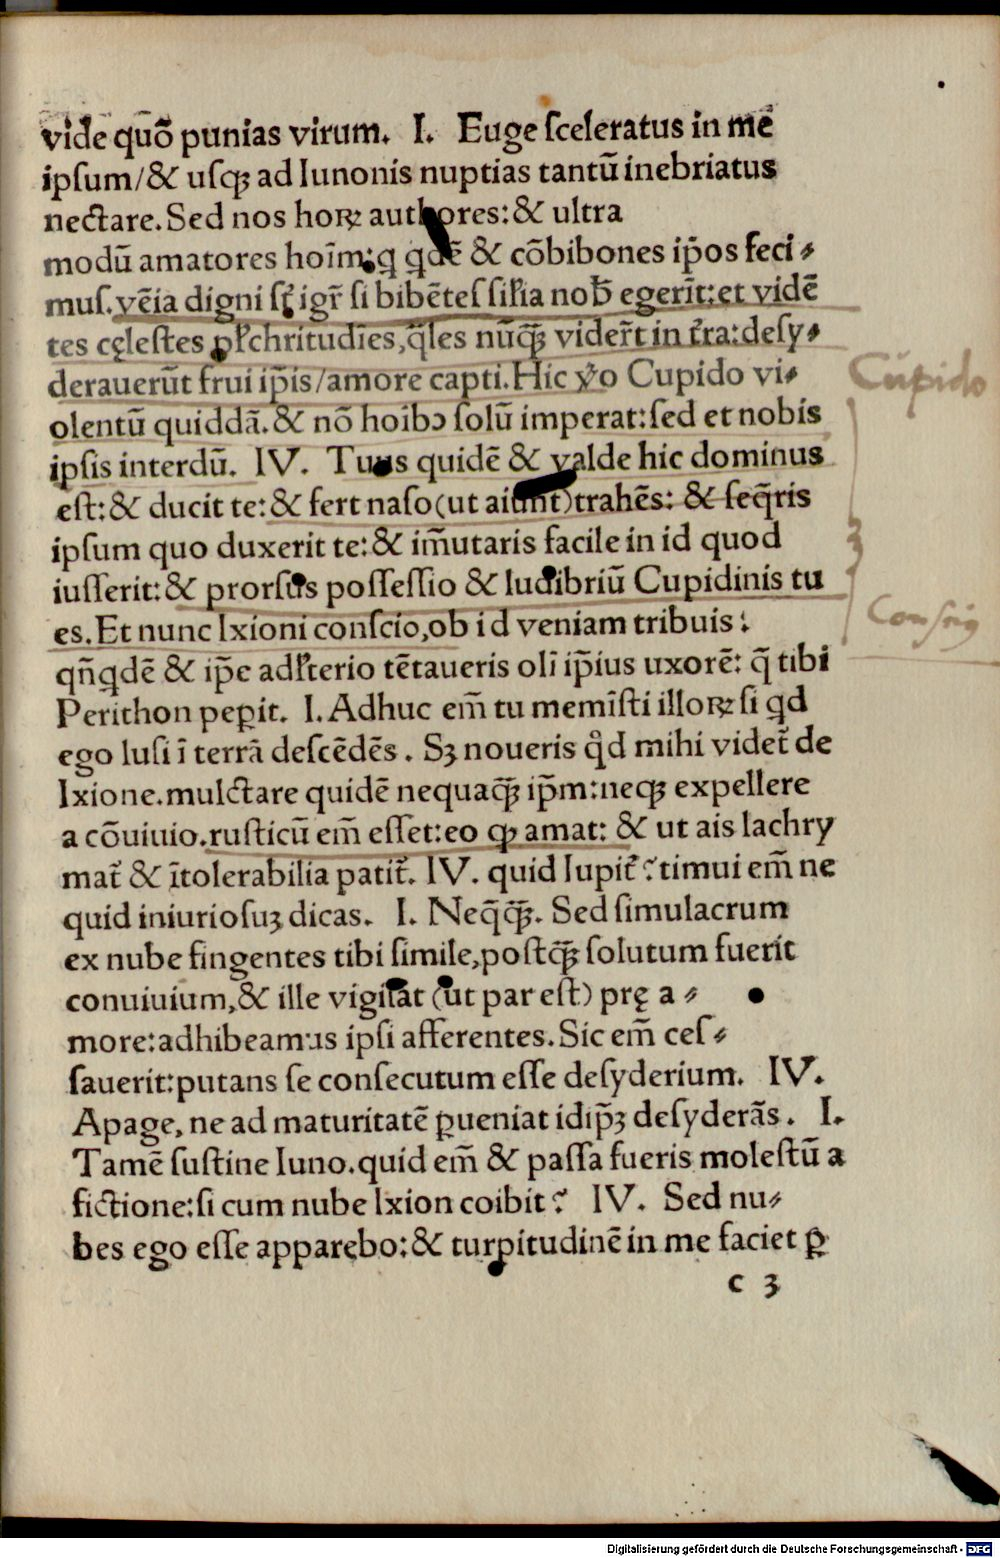 vide quõ punias virum. I. Euge sceleratus in mē
ipsum/& usqꝫ ad Iunonis nuptias tantũ inebriatus
nectare. Sed nos hoꝝ authores: & ultra
modũ amatores hoĩm: q qdẽ & cõbibones ip̃os feci⸗
mus. vẽia digni sꝫ igr̃ si bibẽtes silia nob egerĩt: et vidẽ
tes cęlestes plchritudĩes, q̃les nũqꝫ̃ viderr̃t in tr̃ra: desy⸗
derauerũt frui ip̃is/amore capti. Hic ꝟo Cupido vi⸗
olentũ quiddã. & nõ hoĩbꝰ solũ imperat: sed et nobis
ipsis interdũ. IV. Tuus quidẽ & valde hic dominus
est: & ducit te: & fert naso (ut aiunt) trahẽs: & seq̃ris
ipsum quo duxerit te: & im̃utaris facile in id quod
iusserit: & prorsus possessio & ludibriũ Cupidinis tu
es. Et nunc Ixioni conscio, ob id veniam tribuis:
qñqdẽ & ip̃e adlterio tẽtaueris oli ip̃ius uxorẽ: q̃ tibi
Perithon peꝑit. I. Adhuc em̃ tu memĩsti illoꝝ si qd
ego lusi ĩ terrã descẽdẽs. Sꝫ noueris qd mihi videt̃ de
Ixione. mulctare quidẽ nequaqꝫ̃ ip̃m: neqꝫ expellere
a cõuiuio. rusticũ em̃ esset: eo ꝙ amat: & ut ais lachry
mat̃ & ĩtolerabilia patit̃. IV. quid Iupit̃? timui em̃ ne
quid iniuriosuꝫ dicas. I. Neq̃qꝫ̃. Sed simulacrum
ex nube fingentes tibi simile, postqꝫ̃ solutum fuerit
conuiuium, & ille vigilat (ut par est) prę a⸗
more: adhibeamus ipsi afferentes. Sic em̃ ces⸗
sauerit: putans se consecutum esse desyderium. IV.
Apage, ne ad maturitatẽ ꝑueniat idip̃ꝫ desyderãs. I.
Tamẽ sustine Iuno. quid em̃ & passa fueris molestũ a
fictione: si cum nube Ixion coibit? IV. Sed nu⸗
bes ego esse apparebo: & turpitudinẽ in me faciet ꝑ
c 3
Cupido
Digitalisierung gefördert durch die Deutsche Forschungsgemeinschaft - DFG